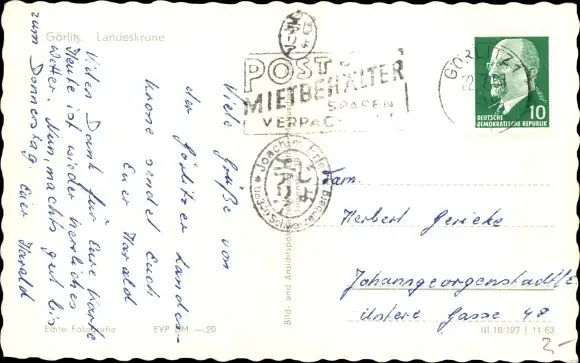 Görlitz. Landeskrone
Viele Grüße von
der Görlitzer Landes-
krone sendet Euch
Euer Harald
Vielen Dank für Eure Karte
Heute ist wieder herrliches
Wetter. Nun, machts gut bis
zum Donnerstag. Euer Harald
POST
MIETBEHÄLTER
SPAREN
VERPAC
GÖRLITZ
DEUTSCHE
DEMOKRATISCHE REPUBLIK
10
Joachim
Bild- und Ansichtspos
Fam.
Herbert Gericke
Johanngeorgenstadt
Untere Gasse 48
Echte Fotografie
EVP DM —.20
III/18/197 | 11 63
2,-